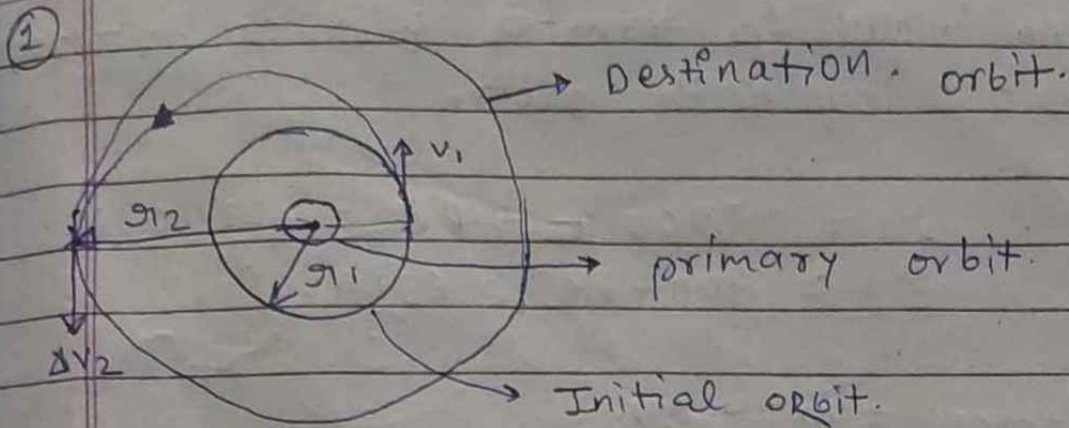 1
Destination. orbit.
V1
r2
primary orbit.
r1
ΔV2
Initial ORbit.